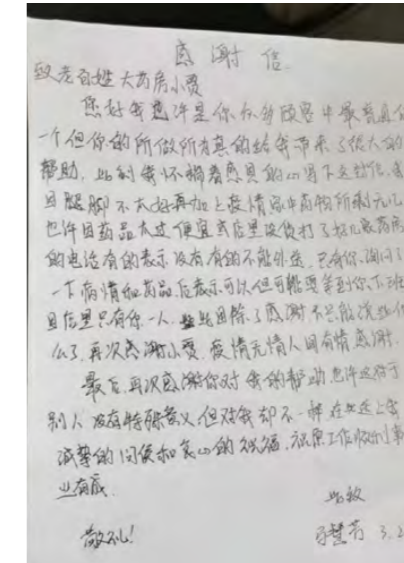 感谢信
致老百姓大药房小贾
您好我也许是你众多顾客中最普通
一个但你的所做所为真的给我带来了很大的
帮助，此刻我怀揣着感恩的心写下这封信，
因腿脚不太好再加上疫情家中药物所剩无几
也许因药品太过便宜或店里没货打了好几家药房
的电话有的表示没有有的不能外送，只有你询问了
一下病情和药品后表示可以但可能要等到你下班
因店里只有你一人，此时除了感谢不知能说些什
么了，再次感谢小贾，疫情无情人间有情感谢
最后再次感谢你对我的帮助也许这对于
别人没有特殊意义但对我却不一样在此送上我
诚挚的问候和衷心的祝福，祝愿工作顺利事
业有成
此致
敬礼！